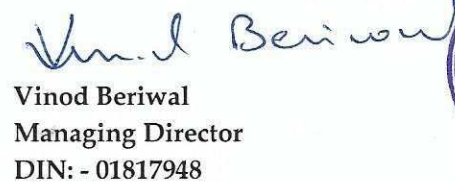 Vinod Beriwal
Vinod Beriwal
Managing Director
DIN: - 01817948